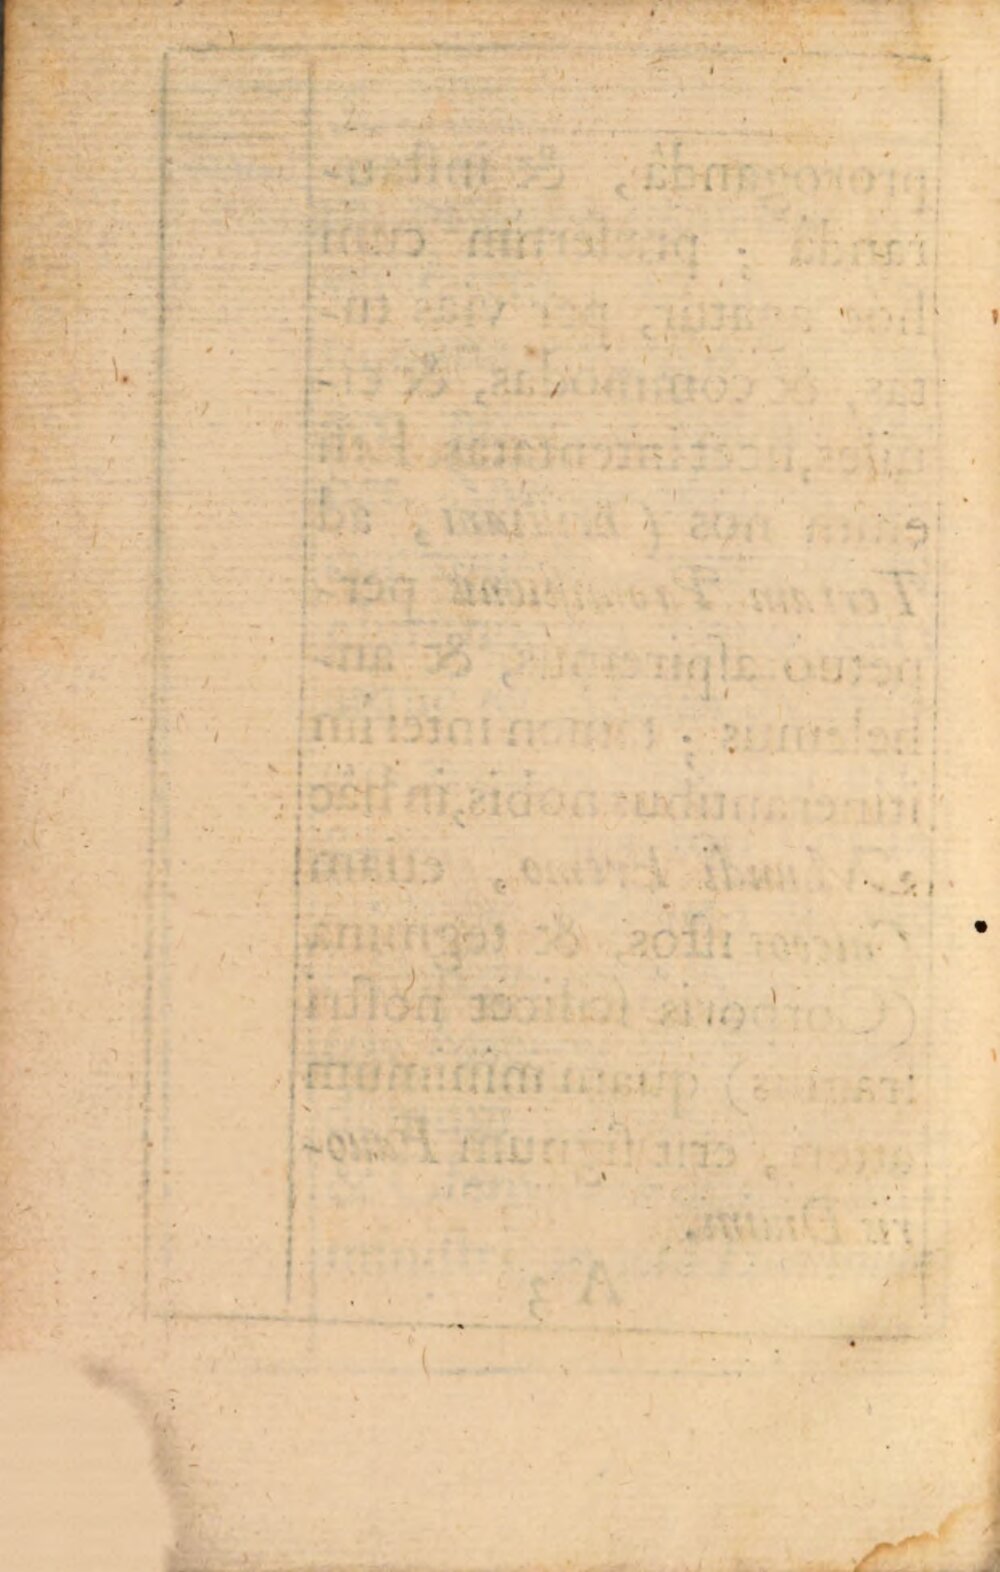 prorogandâ, & instau-
randâ ; præsertim cùm
hoc agatur, per vias tu-
tas, & commodas, & ci-
uiles, licet intentatas. Etsi
enim nos (Christiani, ad
Terram Promissionis per-
petuò aspiremus, & an-
helemus ; tamen interim
itinerantibus nobis, in hâc
Mundi Eremo, etiam
Calceos istos, & tegmina
(Corporis scilicet nostri
fragilis) quàm minimùm
atteri, erit signum Fauo-
ris Diuini.
A 3